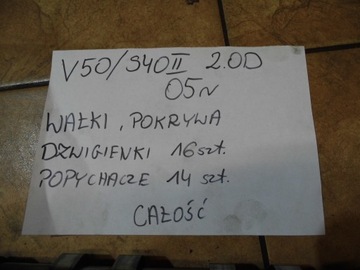 V50/S40II 2.0D
05r
WAŁKI, POKRYWA
DZWIGIENKI 16szt.
POPYCHACZE 14 szt.
CAŁOŚĆ